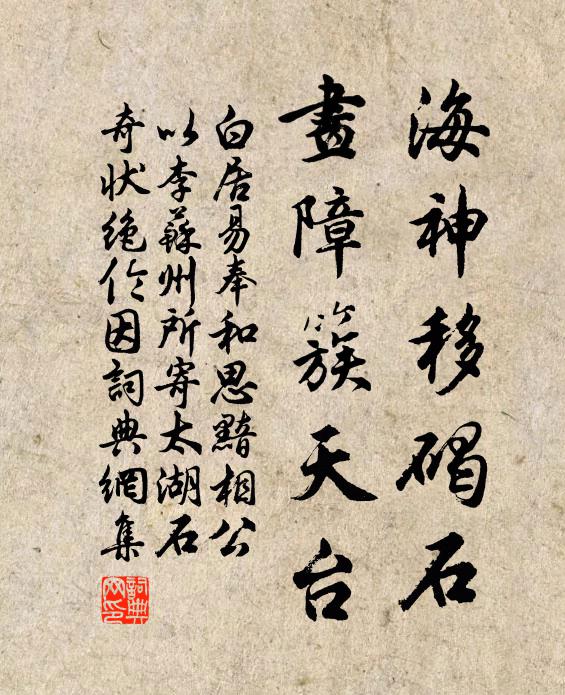 海神移碣石
畫障簇天台
白居易奉和思黯相公
以李蘇州所寄太湖石
奇状絶伦因詞典網集
詞典网印